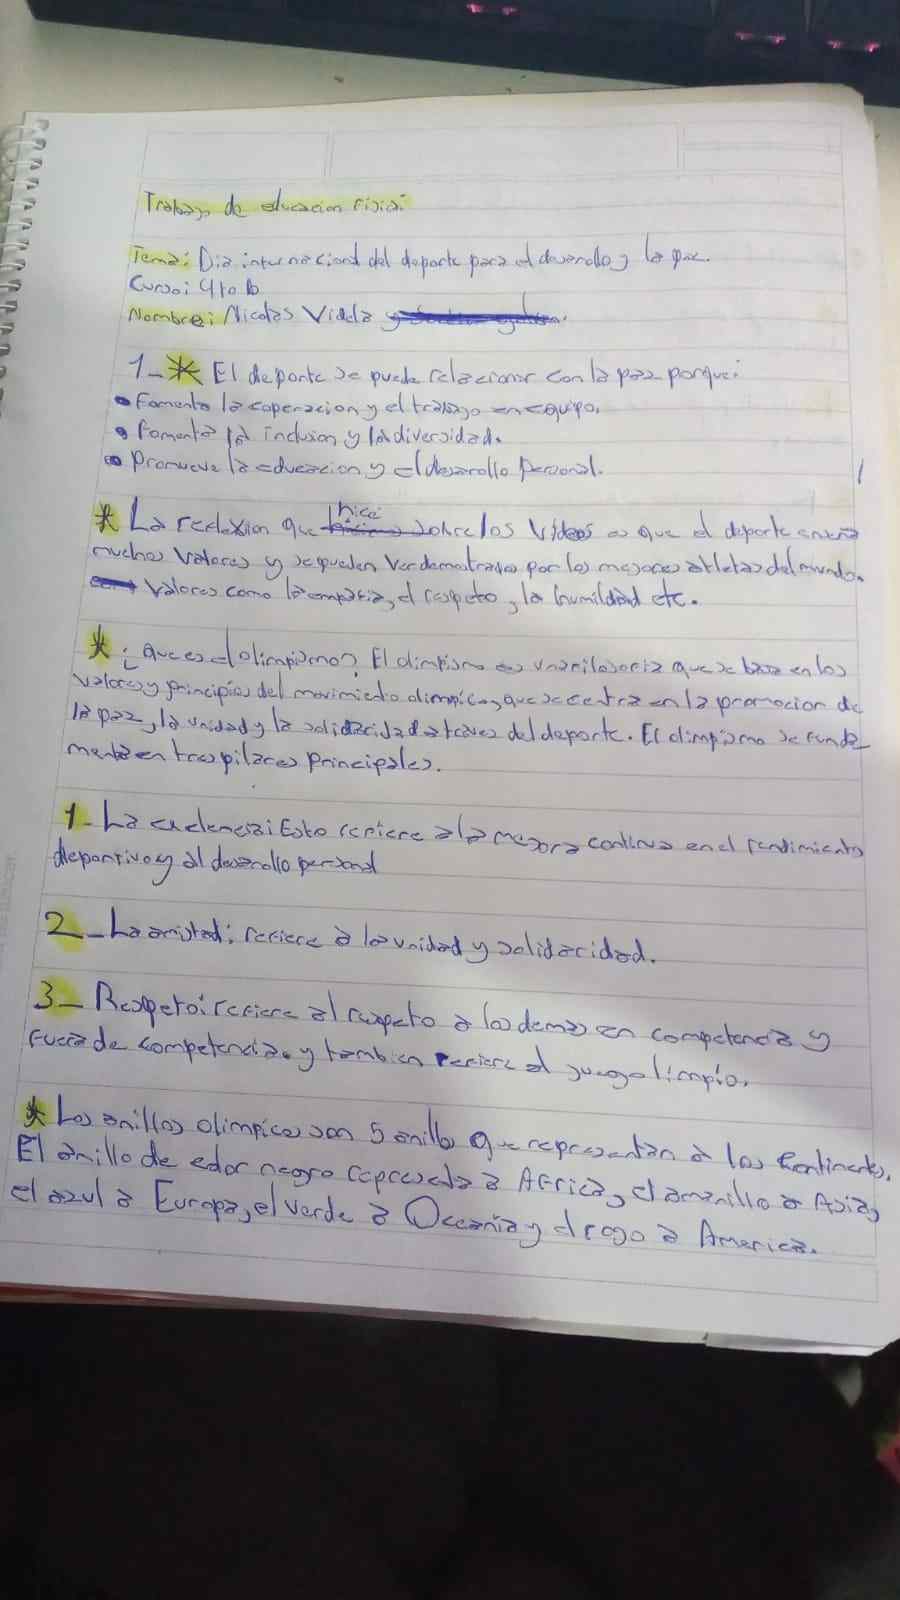 Trabajo de educacion fisica:
Tema: Dia internacional del deporte para el desarrollo y la paz.
Curso: 4to b
Nombre: Nicolas Videla
1- * El deporte se puede relacionar con la paz porque:
• Fomenta la coperacion y el trabajo en equipo.
• Fomenta la inclusion y la diversidad.
• Promueve la educacion y el desarrollo personal.
* La reflexion que hice sobre los videos es que el deporte enseña
muchos valores y se pueden ver demostrados por los mejores atletas del mundo.
valores como la empatia, el respeto, la humildad etc.
* ¿Que es el olimpismo? El olimpismo es una filosofia que se basa en los
valores y principios del movimiento olimpico, que se centra en la promocion de
la paz, la unidad y la solidaridad a traves del deporte. El olimpismo se funda
menta en tres pilares principales.
1- La exelencia: Esto refiere a la mejora continua en el rendimiento
deportivo y al desarollo personal
2- La amistad: refiere a la unidad y solidaridad.
3- Respeto: refiere al respeto a los demas en competencia y
fuera de competencia. y tambien refiere al juego limpio.
* Los anillos olimpicos son 5 anillos que representan a los Continentes.
El anillo de color negro representa a Africa, el amarillo a Asia,
el azul a Europa, el verde a Oceania y el rojo a America.